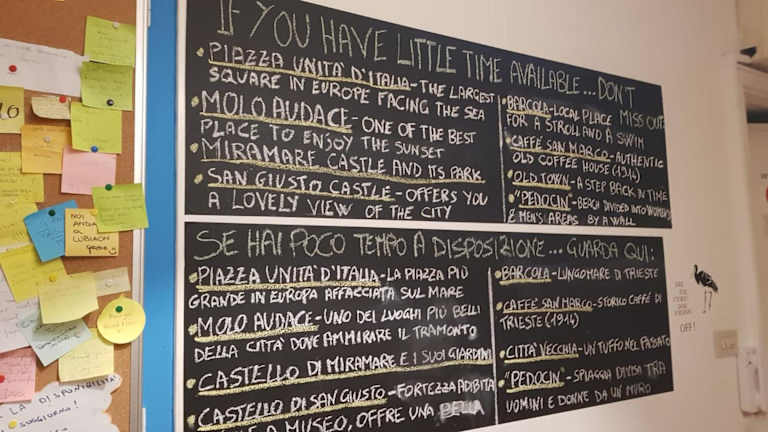 IF YOU HAVE LITTLE TIME AVAILABLE... DON'T
MISS OUT:
• PIAZZA UNITA' D'ITALIA - THE LARGEST
SQUARE IN EUROPE FACING THE SEA
• MOLO AUDACE - ONE OF THE BEST
PLACE TO ENJOY THE SUNSET
• MIRAMARE CASTLE AND ITS PARK
• SAN GIUSTO CASTLE - OFFERS YOU
A LOVELY VIEW OF THE CITY
• BARCOLA - LOCAL PLACE
FOR A STROLL AND A SWIM
• CAFFÈ SAN MARCO - AUTHENTIC
OLD COFFEE HOUSE (1914)
• OLD TOWN - A STEP BACK IN TIME
• "PEDOCIN" - BEACH DIVIDED INTO WOMEN'S
& MEN'S AREAS BY A WALL
SE HAI POCO TEMPO A DISPOSIZIONE... GUARDA QUI:
• PIAZZA UNITA' D'ITALIA - LA PIAZZA PIÙ
GRANDE IN EUROPA AFFACCIATA SUL MARE
• MOLO AUDACE - UNO DEI LUOGHI PIÙ BELLI
DELLA CITTÀ DOVE AMMIRARE IL TRAMONTO
• CASTELLO DI MIRAMARE E I SUOI GIARDINI
• CASTELLO DI SAN GIUSTO - FORTEZZA ADIBITA
A MUSEO, OFFRE UNA BELLA
• BARCOLA - LUNGOMARE DI TRIESTE
• CAFFÈ SAN MARCO - STORICO CAFFÈ DI
TRIESTE (1914)
• CITTÀ VECCHIA - UN TUFFO NEL PASSATO
• "PEDOCIN" - SPIAGGIA DIVISA TRA
UOMINI E DONNE DA UN MURO
NOI
ANDIA
A
LUBIAON
LA DISPONIBILITÀ
SOGGIORNO!
OFF!